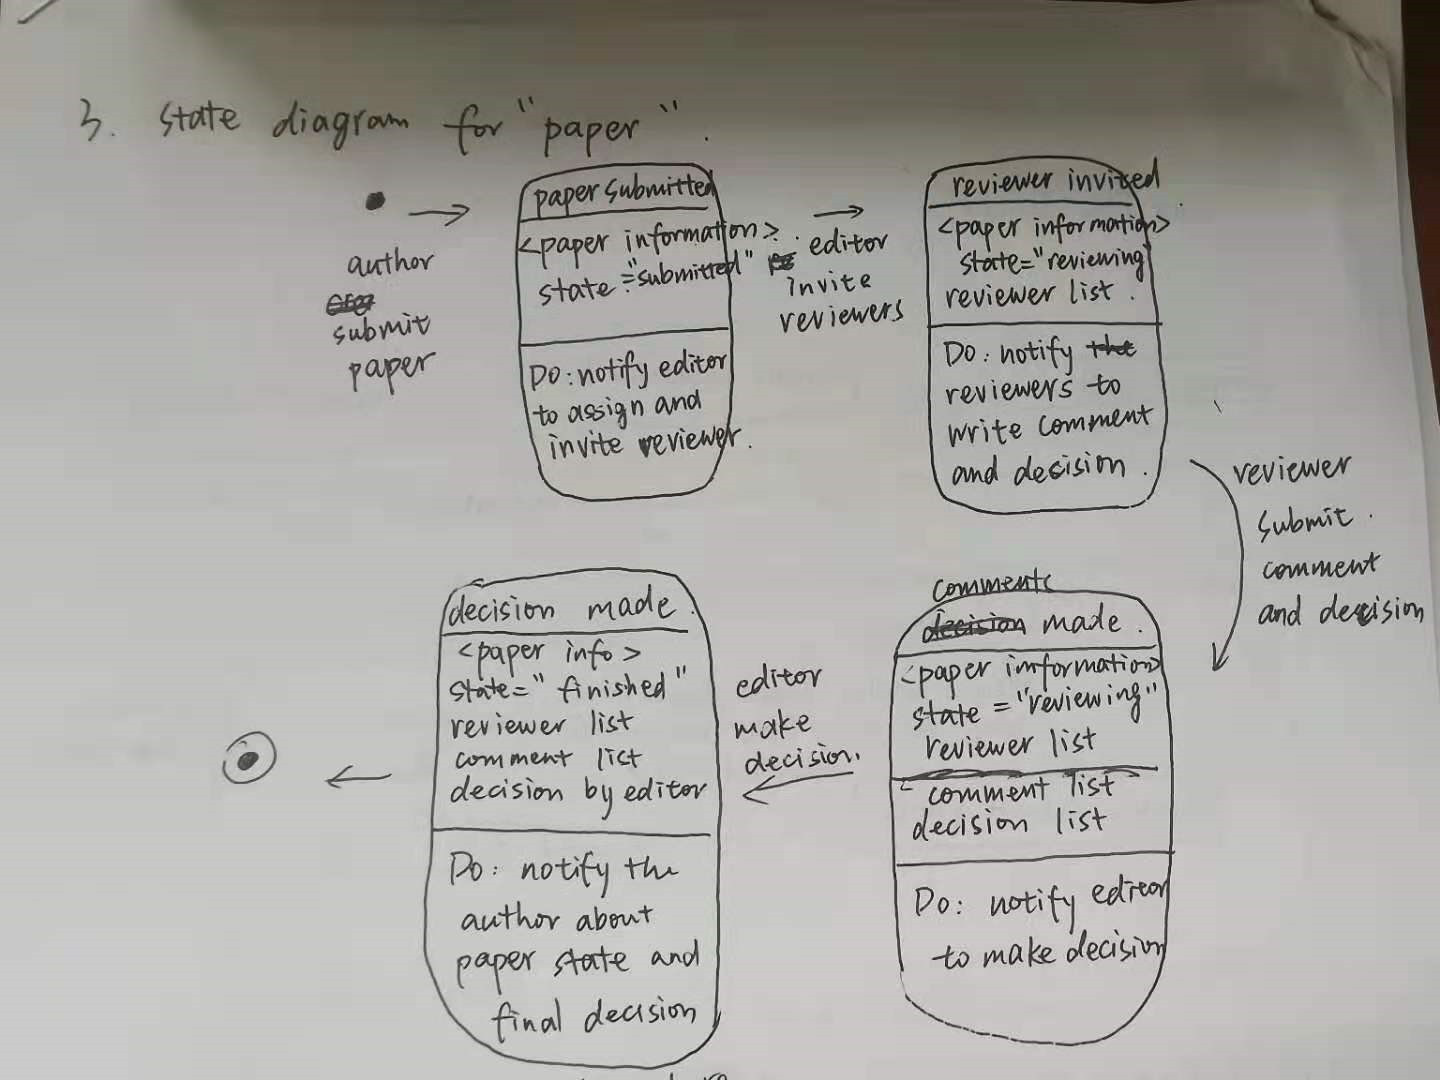 3. state diagram for "paper".
author
submit
paper
paper submitted
<paper information>.
state="submitted"
Do: notify editor
to assign and
invite reviewer.
editor
invite
reviewers
reviewer invited
<paper information>
state="reviewing"
reviewer list.
Do: notify the
reviewers to
write comment
and decision.
reviewer
submit.
comment
and decision
comments
decision made.
<paper imformation>
state="reviewing"
reviewer list
comment list
decision list
Do: notify editor
to make decision
editor
make
decision.
decision made.
<paper info>
state="finished"
reviewer list
comment list
decision by editor
Do: notify the
author about
paper state and
final decision